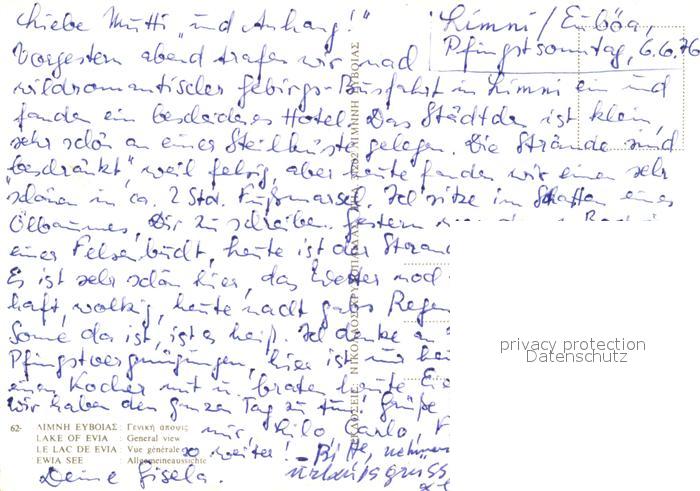 Limni / Euböa,
Pfingstsonntag, 6.6.76
Liebe Mutti "und Anhang!"
Vorgestern abend trafen wir nach
wildromantischer Gebirgs-Busfahrt in Limni ein und
fanden ein bescheidenes Hotel. Das Städtchen ist klein,
sehr schön an einer Steilküste gelegen. Die Strände sind
"beschränkt", weil felsig, aber heute fanden wir einen sehr
schönen in ca. 2 Std. Fußmarsch. Ich sitze im Schatten eines
Ölbaumes, Dir zu schreiben. Gestern
einer Felsenbucht, heute ist der Stran
Es ist sehr schön hier, das Wetter noch
haft, wolkig, heute nacht gabs Regen
Sonne da ist, ist es heiß. Ich denke an
Pfingstvergnügungen, hier ist nur
einen Kocher mit u. braten heute
wir haben den ganzen Tag zu tun! Grüße
mir, Lilo, Carlo
so weiter! - Bitte, nehm
Urlaubsgrüss
Deine Gisela.
62- ΛΙΜΝΗ ΕΥΒΟΙΑΣ : Γενική άποψις
LAKE OF EVIA : General view
LE LAC DE EVIA : Vue générale
EWIA SEE : Allgemeineaussichte
privacy protection
Datenschutz